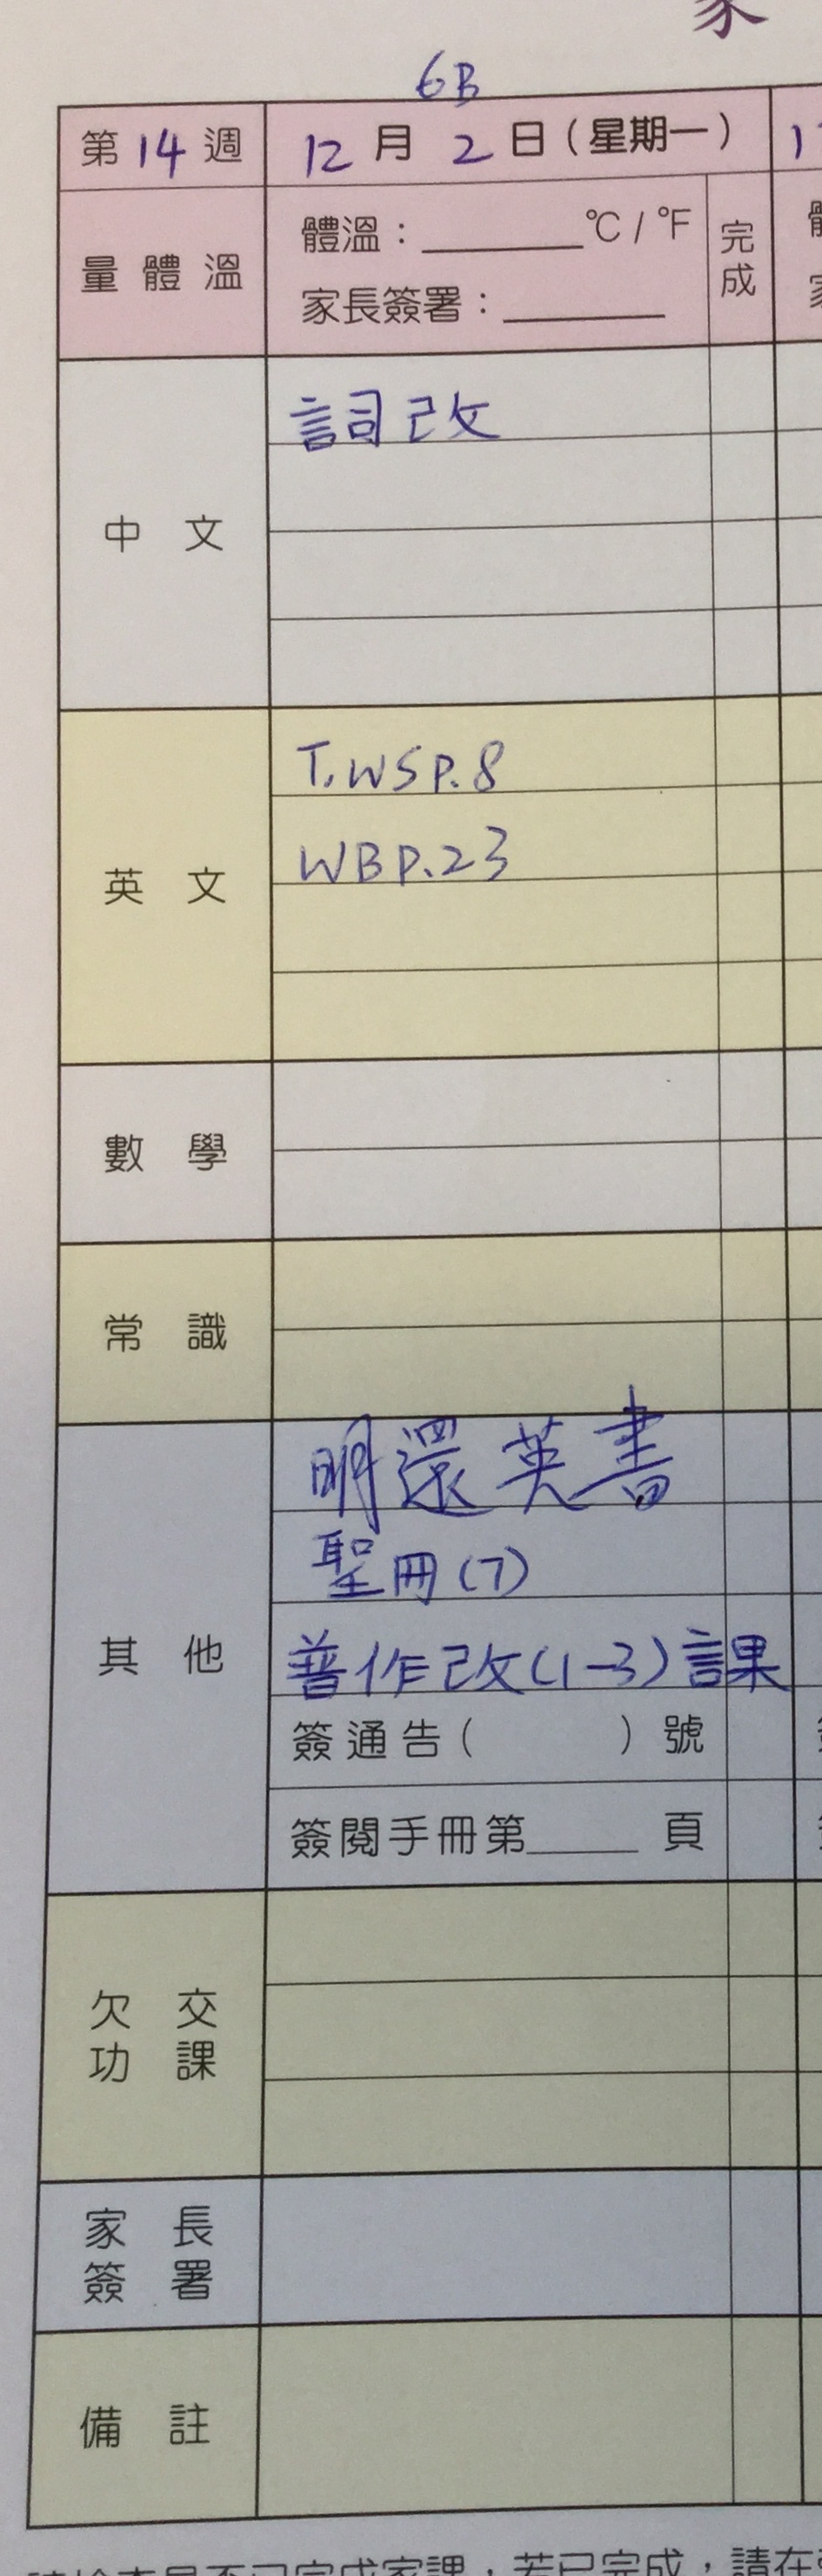 家
6B
第14週
12月2日(星期一)
量體溫
體溫:______°C / °F
家長簽署:______
完成
中文
詞改
英文
T.WS P.8
WB P.23
數學
常識
其他
明還英書
聖冊(7)
普作改(1-3)課
簽通告( )號
簽閱手冊第____頁
欠交功課
家長簽署
備註
完成家課,若已完成,請在